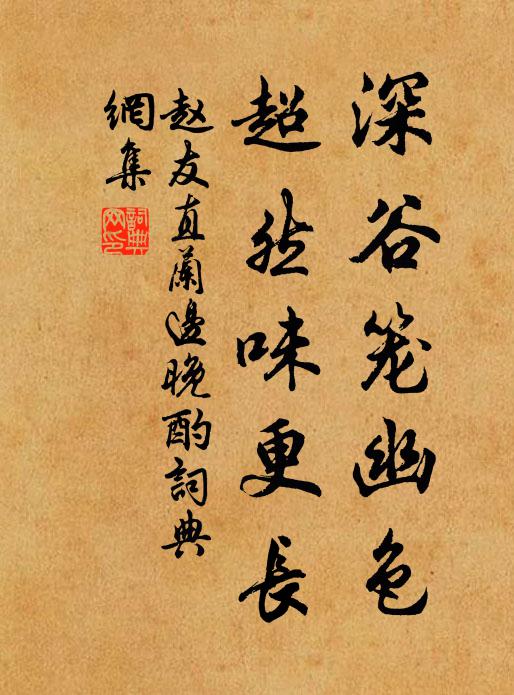 深谷笼幽色
超然味更長
赵友直蘭邊晚酌詞典
網集
詞典
网印